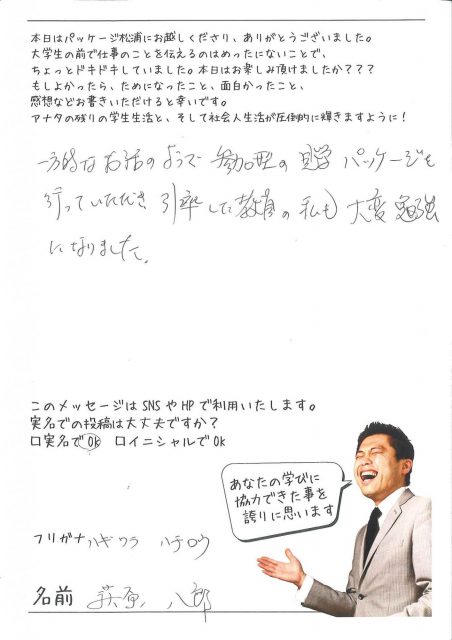 本日はパッケージ松浦にお越しくださり、ありがとうございました。
大学生の前で仕事のことを伝えるのはめったにないことで、
ちょっとドキドキしていました。本日はお楽しみ頂けましたか???
もしよかったら、ためになったこと、面白かったこと、
感想などお書きいただけると幸いです。
アナタの残りの学生生活と、そして社会人生活が圧倒的に輝きますように!
一方的なお話のようで 参加型の見学 パッケージを
行っていただき 引率した教員の私も 大変勉強
になりました。
このメッセージはSNSやHPで利用いたします。
実名での投稿は大丈夫ですか?
□実名でOK □イニシャルでOK
あなたの学びに
協力できた事を
誇りに思います
フリガナ ハギワラ ハチロウ
名前 萩原 八郎